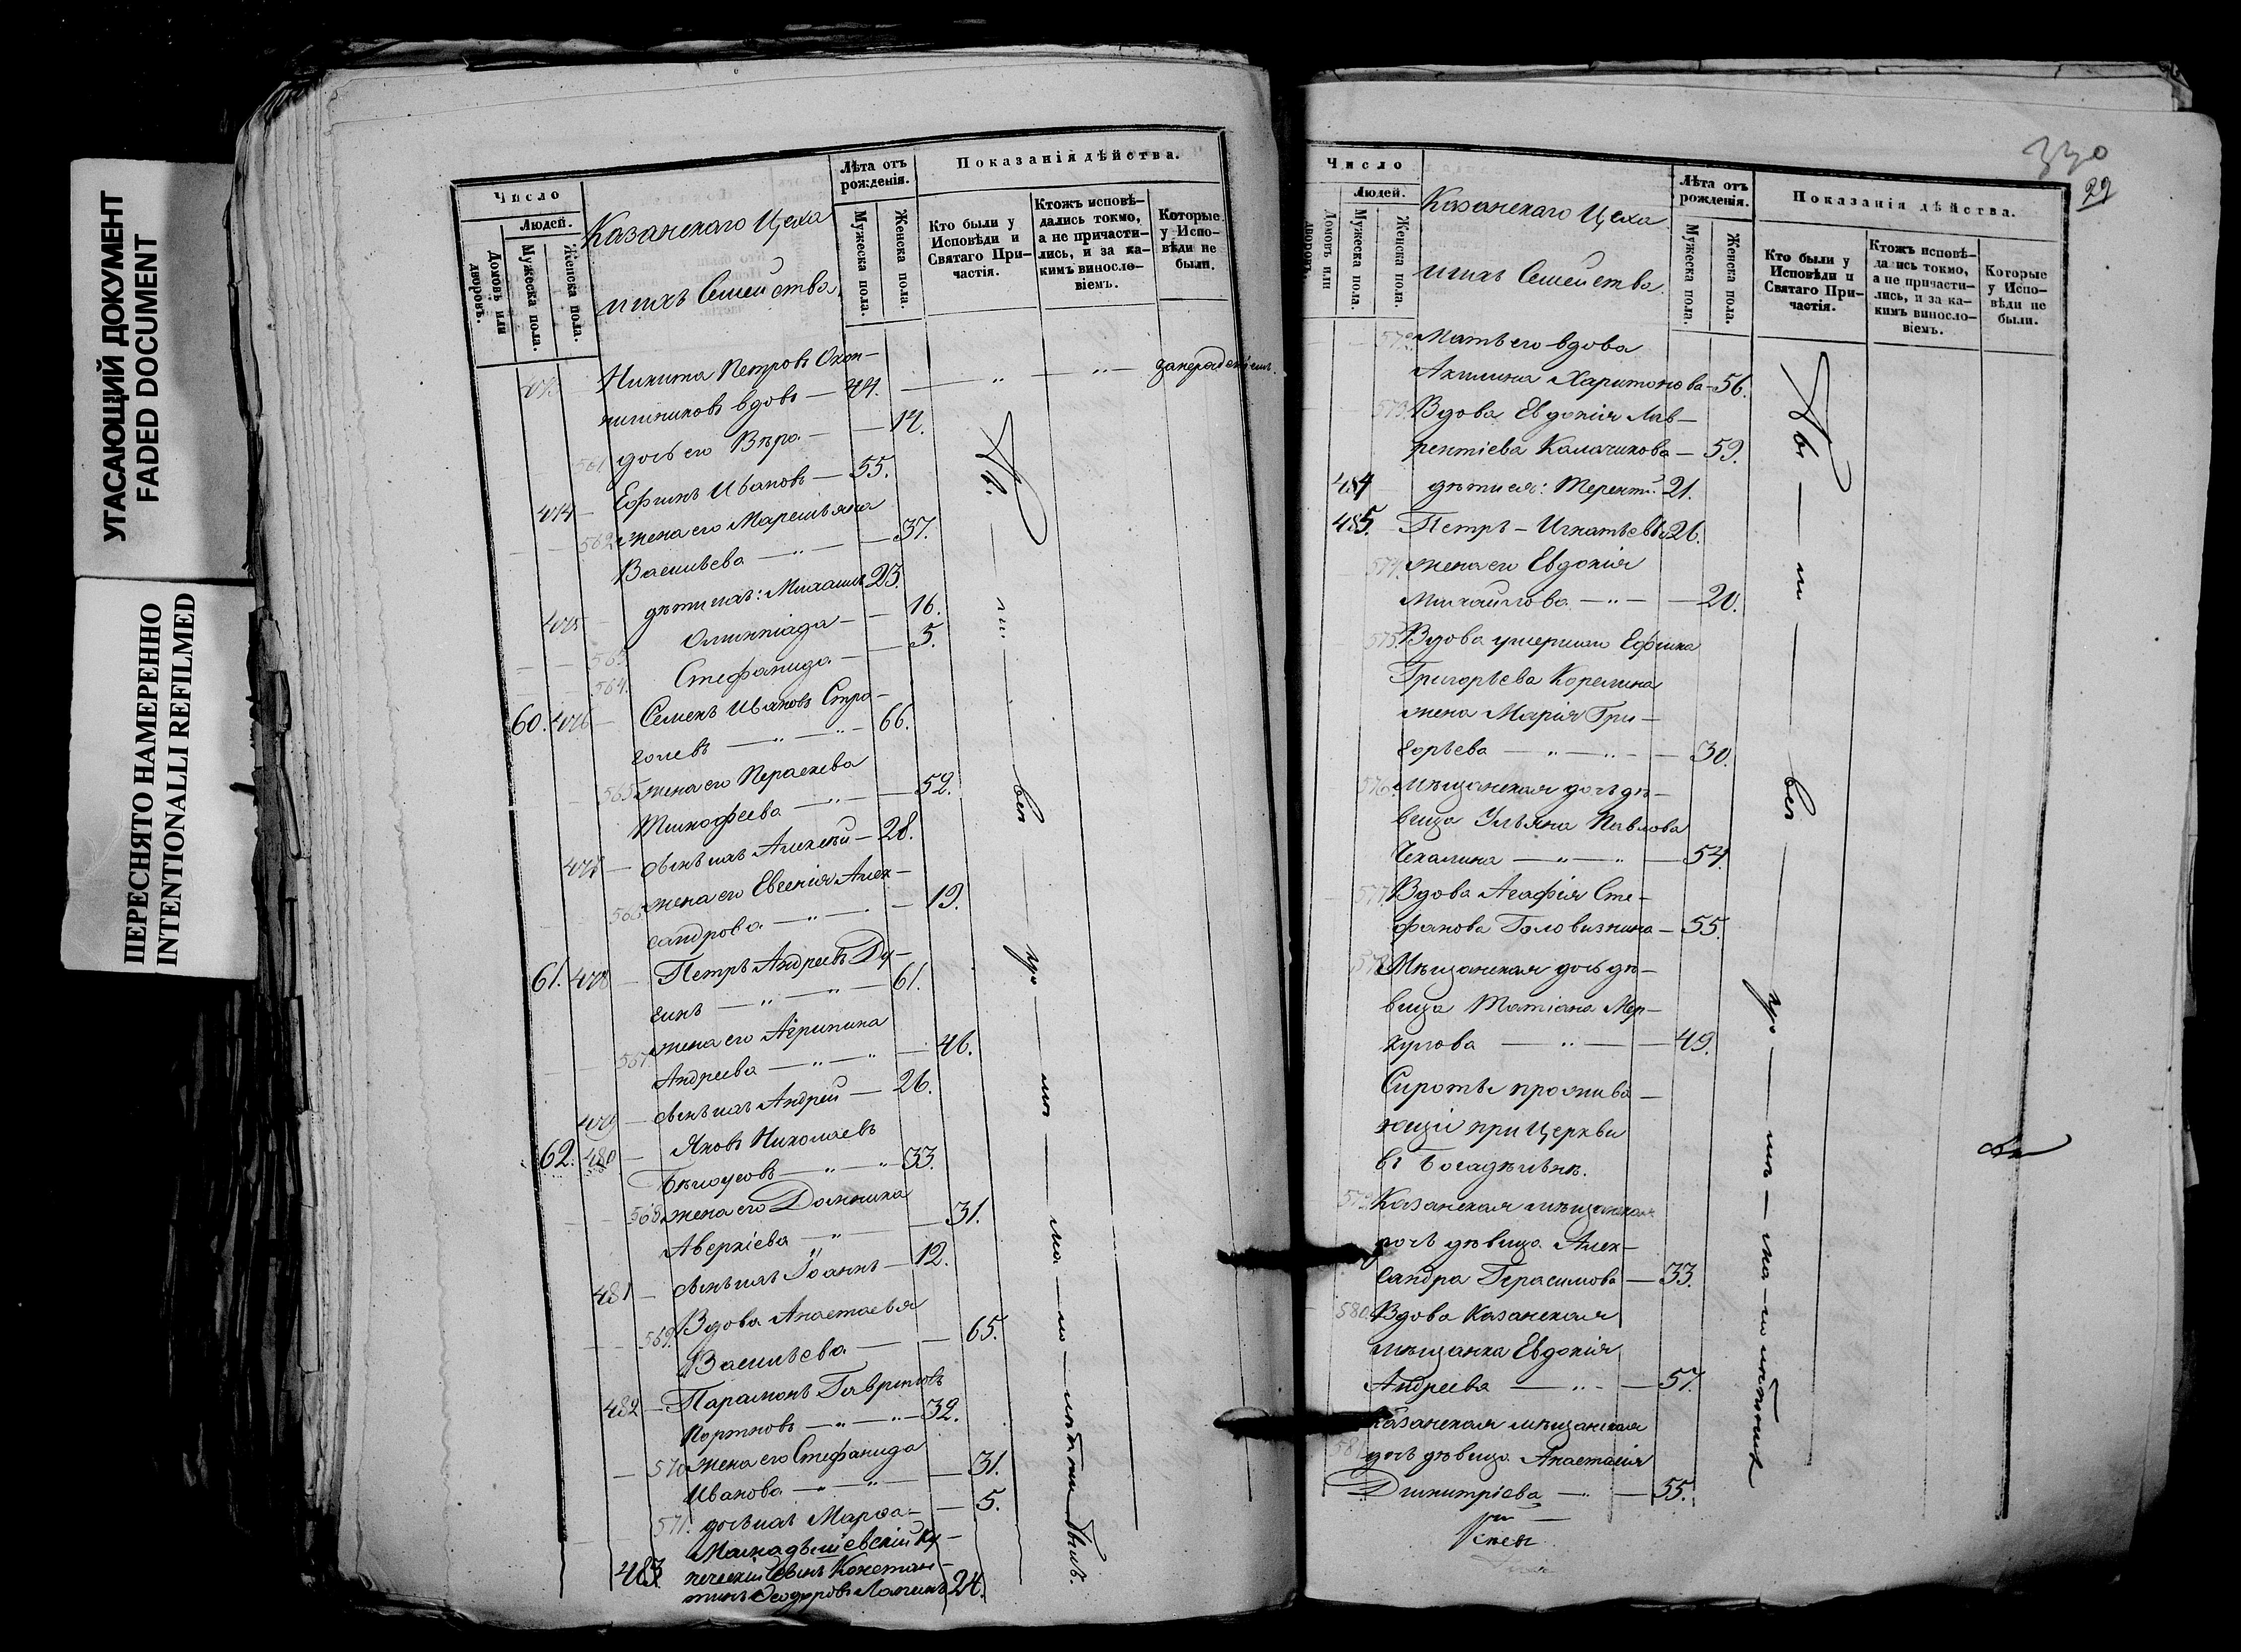 УГАСАЮЩИЙ ДОКУМЕНТ
FADED DOCUMENT
ПЕРЕСНЯТО НАМЕРЕННО
INTENTIONALLI REFILMED
Число
Людей.
Домовъ или дворовъ.
Мужеска пола.
Женска пола.
Казанскаго Цеха
и ихъ Семейства
Лѣта отъ рожденія.
Мужеска пола.
Женска пола.
Показанія дѣйства.
Кто были у Исповѣди и Святаго Причастія.
Ктожъ исповѣдались токмо, а не причастились, и за какимъ винословіемъ.
Которые у Исповѣди не были.
473 — Никита Петровъ
вдовъ — 44.
561 дочь его Вѣра — 14.
474 — Ефимъ Ивановъ — 55.
562 жена его Маремьяна
Васильева — 37.
475 — дѣти ихъ: Михаилъ 23.
563 Олимпіада — 16.
564. Стефанида — 5.
60. 476 — Семенъ Ивановъ Стро-
голевъ — 66.
565 жена его Параскева
Тимофеева — 52.
477 — сынъ ихъ Алексѣй — 28.
566 жена его Евгенія Алек-
сандрова — 19.
61. 478 — Петръ Андреевъ Ду-
гинъ — 61.
567 жена его Агрипина
Андреева — 46.
479 — сынъ ихъ Андрей — 26.
62. 480 — Яковъ Николаевъ
Бѣлоусовъ — 33.
568 жена его Домника
Аверкіева — 31.
481 — сынъ ихъ Іоаннъ — 12.
569. Вдова Анастасья
Васильева — 65.
482 — Парамонъ Гавриловъ
Портновъ — 32.
570 жена его Стефанида
Иванова — 31.
571. дочь ихъ Марѳа — 5.
483.
сынъ Констан-
тинъ Ѳеодоровъ 24.
330
29
Число
Людей.
Домовъ или дворовъ.
Мужеска пола.
Женска пола.
Казанскаго Цеха
и ихъ Семейства
Лѣта отъ рожденія.
Мужеска пола.
Женска пола.
Показанія дѣйства.
Кто были у Исповѣди и Святаго Причастія.
Ктожъ исповѣдались токмо, а не причастились, и за какимъ винословіемъ.
Которые у Исповѣди не были.
572. Мать его вдова
Акилина Харитонова — 56.
573. Вдова Евдокія Лав-
рентіева Калачикова — 59.
484 дѣти ея: Терентій 21.
485. Петръ — Игнатьевы 26.
574. жена его Евдокія
Михайлова — 20.
575. Вдова умершаго Ефима
Григорьева Корелина
жена Марія Гри-
горьева — 30.
576. Мѣщанская дочь дѣ-
вица Ульяна Павлова
Чекалина — 54.
577. Вдова Агафія Сте-
фанова Головизнина — 55.
578 Мѣщанская дочь дѣ-
вица Татіана Мер-
кулова — 49.
Сироты прожива-
ющіи при Церкви
въ Богадѣльнѣ.
579. Казанская мѣщанская
дочь дѣвица Алек-
сандра Герасимова — 33.
580. Вдова Казанская
мѣщанка Евдокія
Андреева — 57.
Казанская мѣщанская
581. дочь дѣвица Анастасія
Димитріева — 55.